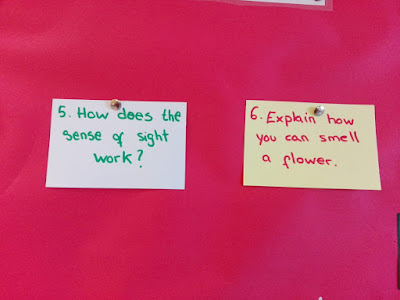 5. How does the
sense of sight
work?
6. Explain how
you can smell
a flower.